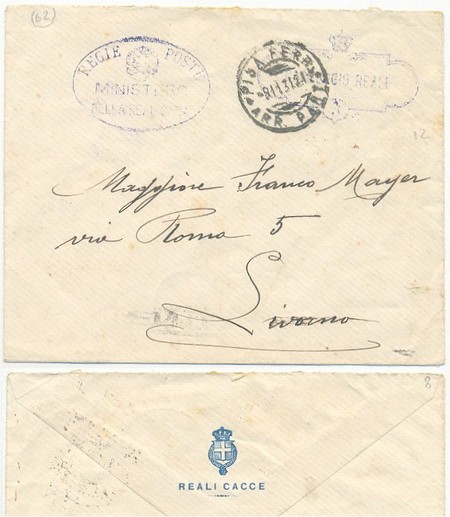 (62)
REGIE POSTE
MINISTERO
DELLA REAL CASA
PISA FERR.
ARR. PART.
REALE
12
Maggiore Franco Mayer
via Roma 5
Livorno
8
REALI CACCE